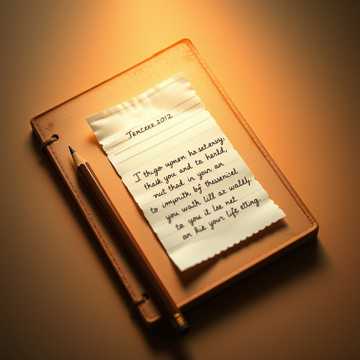 Jentexe 2012
I thgo upmen he setensy,
thak you and to herld,
nut thad in your an
to imporith, by thesseniel
you wath lill az waldy,
to you it lee net
an hie your life etting